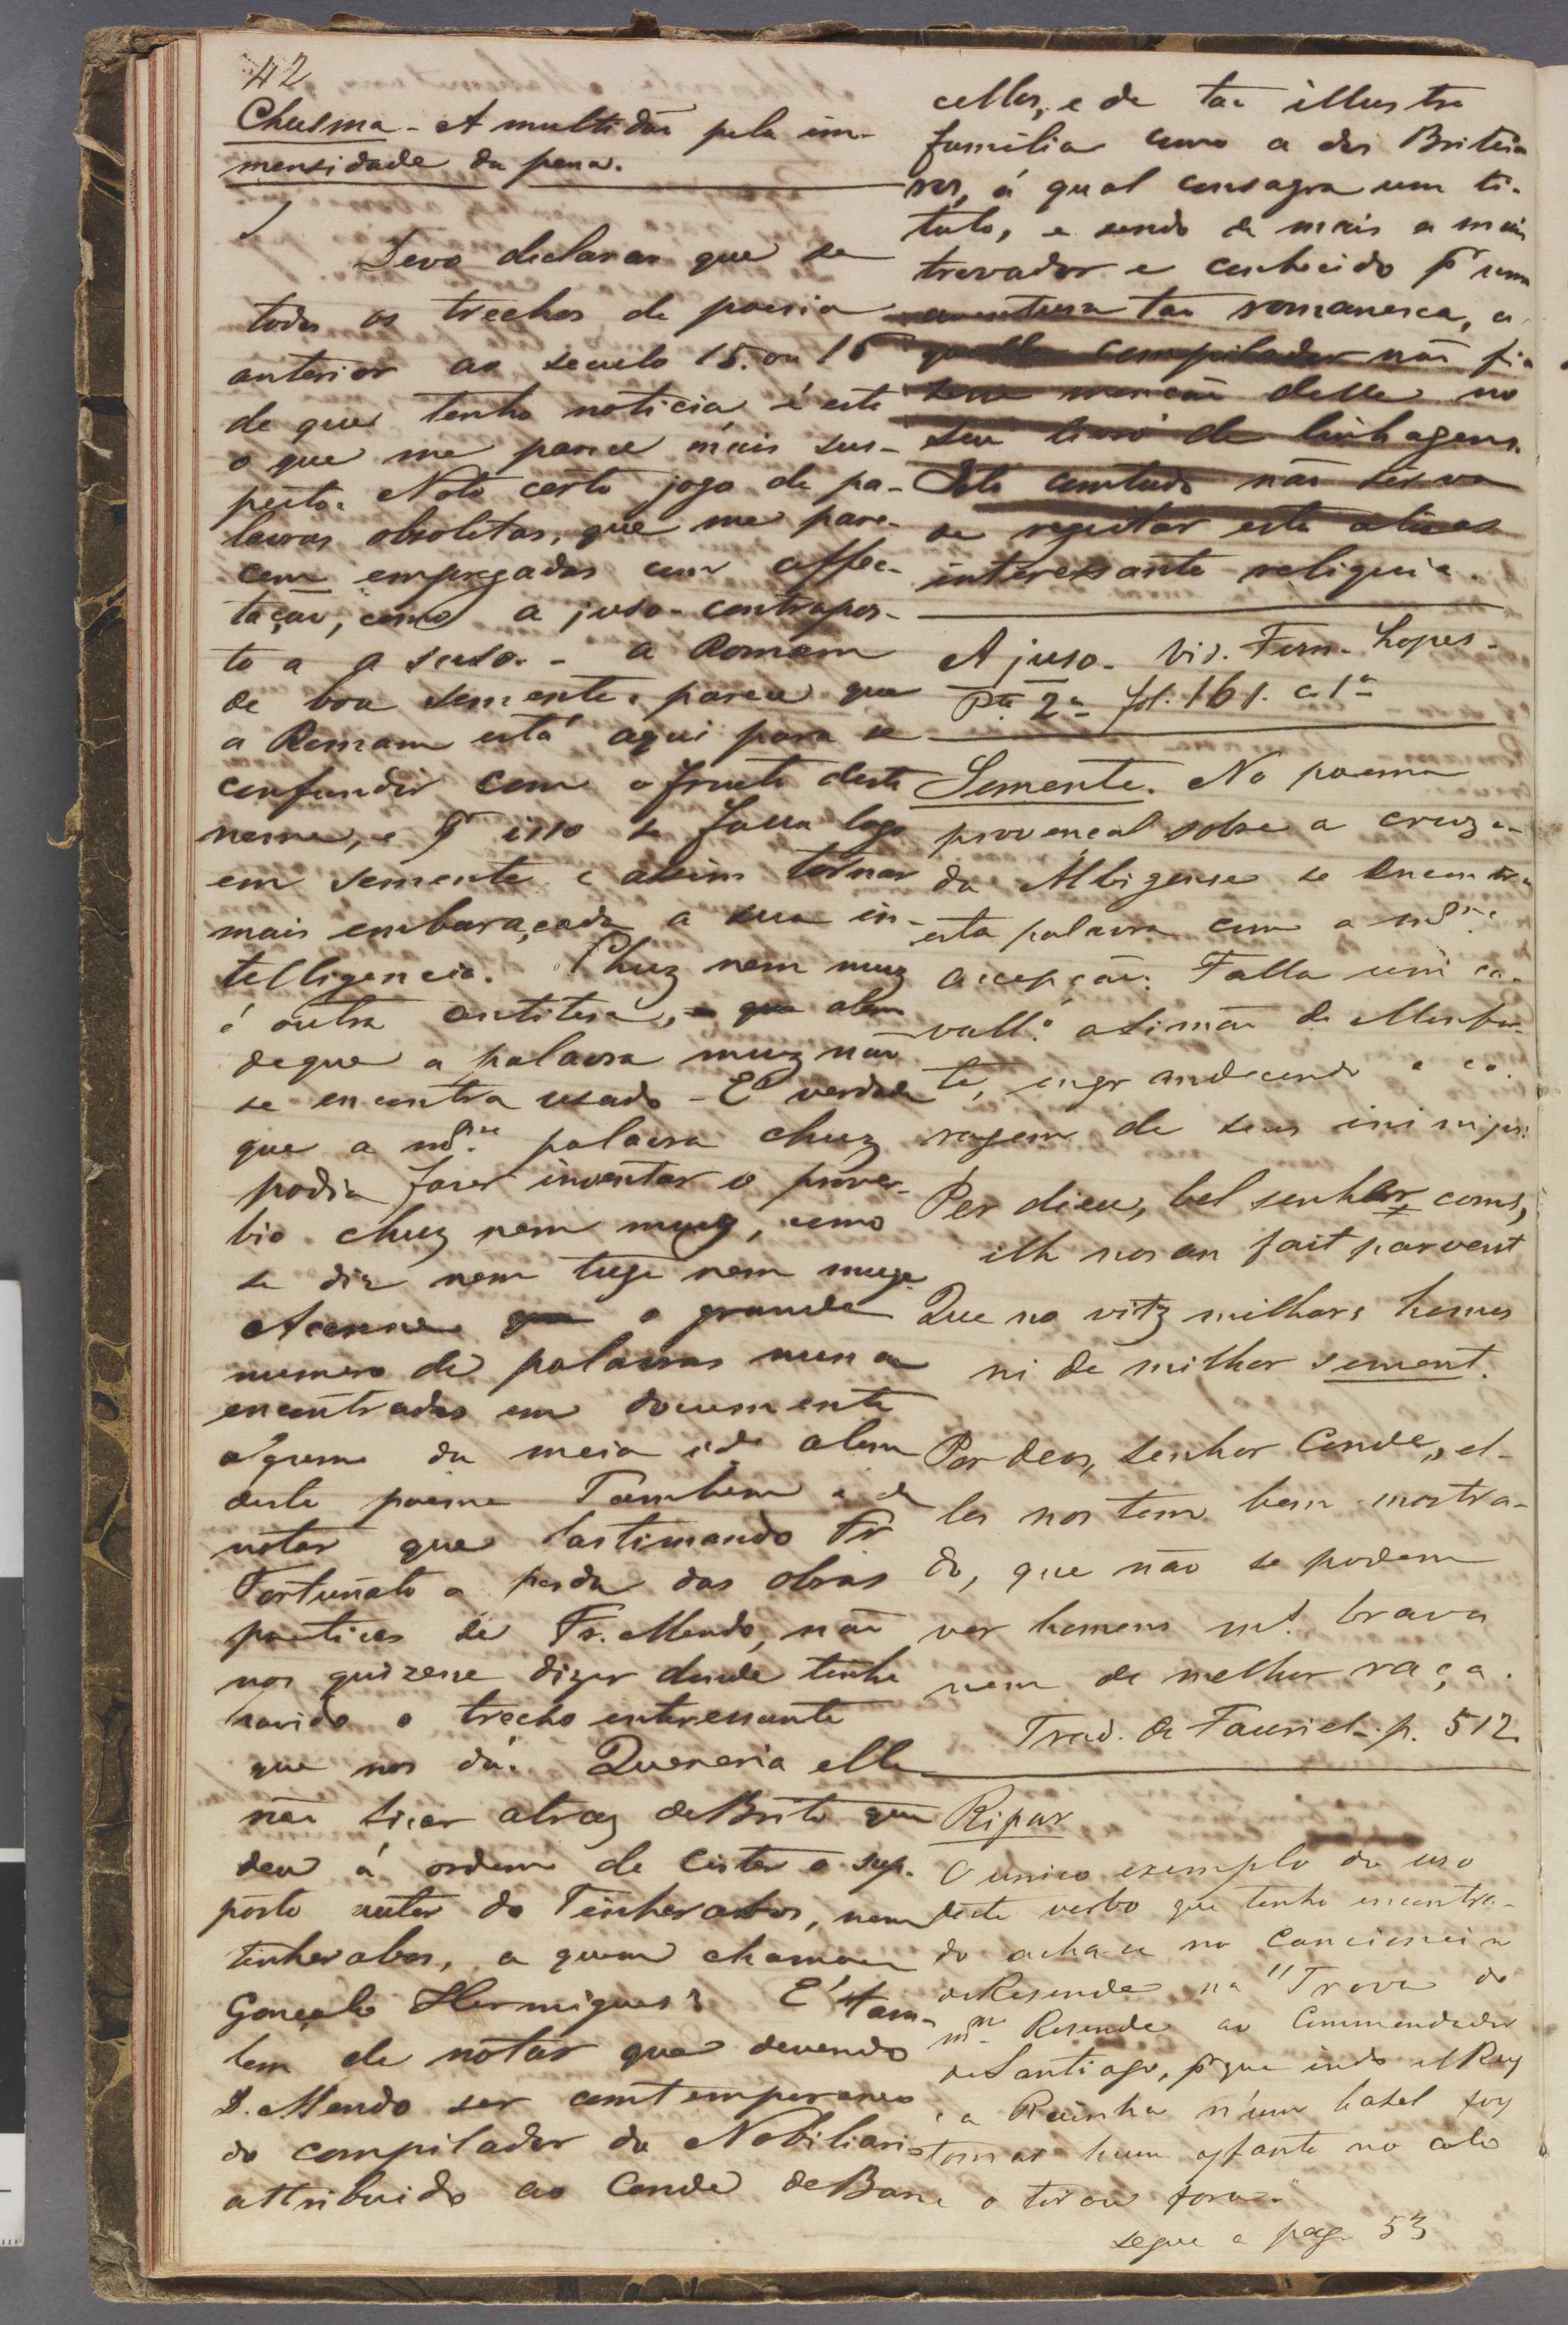 42
Chusma - A multidão pela im-
mensidade da pena.
Devo declarar que de
todos os trechos de poesia
anterior ao seculo 15. ou 16
de que tenho noticia é este
o que me parece mais sus-
peito. Noto certo jogo de pa-
lavras obsoletas, que me pare-
cem empregadas com affec-
tação, como a juso - contrapos-
to a a suso. - a Romam
de boa semente. parece que
a Romam está aqui para se
confundir com o fructo deste
nome, e pr isso se falla logo
em semente e assim tornar
mais embaraçada a sua in-
telligencia. Chuz nem muz
é outra antitese, que alem
de que a palavra muz não
se encontra usado - É verdade
que a mesma palavra chuz
podia fazer inventar o prover-
bio chuz nem muz, como
se diz nem tuge nem muge.
Accresce o grande
numero de palavras nunca
encontradas em documento
algum da meia ide alem
deste poema Tambem é de
notar que lastimando Fr
Fortunato a perda das obras
poeticas de Fr. Mendo, não
nos quizesse dizer donde tinha
havido o trecho interessante
que nos dá. Quereria elle
não ficar atraz de Brito que
deu á ordem de Cister o sup-
posto autor do Tinherabos, nem
tinherabos, a quem chamou
Gonçalo Hermigues? E' tam-
bem de notar que devendo
D. Mendo ser comtemporaneo
do compilador do Nobiliario
attribuido ao Conde de Barc
cellos, e de tão illustre
familia como a dos Britei-
ros, á qual consagra um ti-
tulo, e sendo de mais a mais
trovador e conhecido pr uma
aventura tão romanesca, a
quelle compilador não fi-
zesse menção delle no
seu livro de linhagens.
Isto comtudo não sirva
de regeitar esta alias
interessante reliquia.
A juso. Vid. Fern. Lopes -
Pte 2ª fol. 161. c 1ª
Semente. No poema
provençal sobre a cruza-
da Albigense se encontra
esta palavra com a mesma
accepção. Falla um ca-
vallº a Simão de Monfor-
te, engrandecendo a co-
ragem de seus inimigos:
Per dieu, bel senher coms,
ilh nos an fait parvent
Que no vitz milhors homes
ni de milhor sement.
Por deos, senhor Conde, el-
les nos tem bem mostra-
do, que não se podem
ver homens mt. bravos
nem de melhor raça.
Trad. de Fauriel - p. 512.
Ripar
O unico exemplo do uso
deste verbo que tenho encontra-
do acha-se no Cancioneiro
de Resende na "Trova do
mmo Resende ao Commendador
de Santiago, pr que indo elRey
e a Rainha n'um batel foy
tomar hum yfante no colo
e o tirou fora."
segue a pag 53